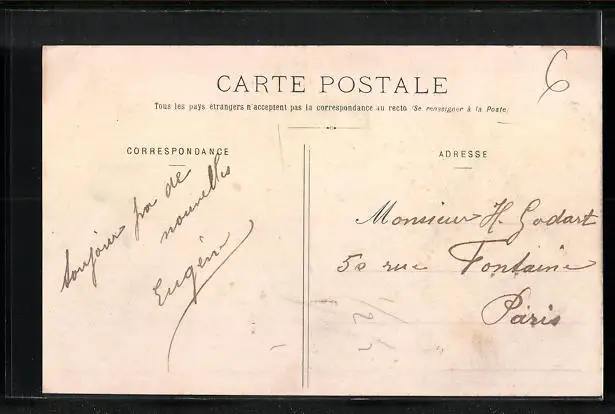 CARTE POSTALE
Tous les pays étrangers n'acceptent pas la correspondance au recto (Se renseigner à la Poste)
6
CORRESPONDANCE
toujour pa de
nouvelles
Eugène
ADRESSE
Monsieur H. Godart
50 rue Fontaine
Paris